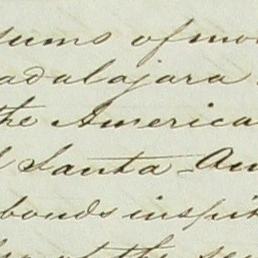 sums of mon
adalajara
the America
Santa-An
bonds inspit